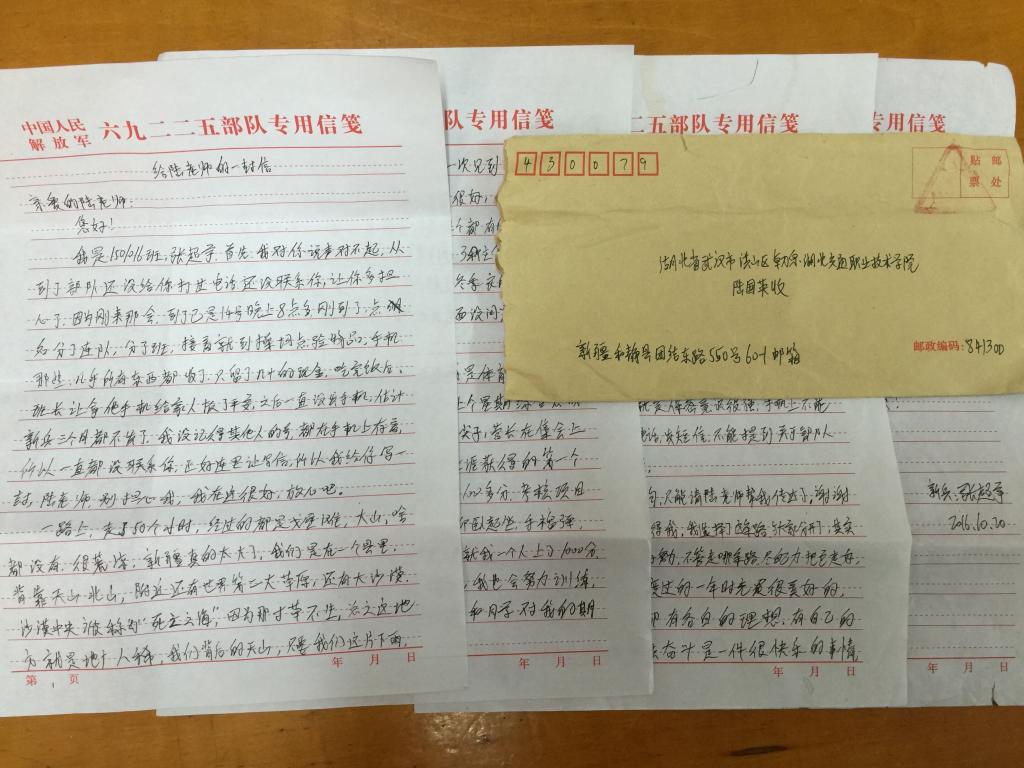 中国人民
解放军 六九二二五部队专用信笺
给陆老师的一封信
亲爱的陆老师:
您好!
我是150616班,张超宇.首先,我对你说声对不起,从
到了部队还没给你打过电话还没联系你,让你多担
心了.因为刚来那会,到了已是14号晚上8点多,刚到了,点
名分了连队,分了班,接着就到操场点验物品,手机
那些,几乎所有东西都收了,只留了几十的现金.吃完饭后,
班长让拿他手机给家人报了平安,之后一直没有手机,估计
新兵三个月都不发了.我没记得其他人的号,都在手机上存着,
所以一直都没联系你,正好连里让写信,所以我给你写一
封,陆老师,别担心我,我在这很好,放心吧.
一路上,走了50个小时,经过的都是戈壁滩,大山,啥
都没有,很荒凉,新疆真的太大了,我们是在一个县里,
背靠天山北山,附近还有世界第二大草原,还有大沙漠,
沙漠中央被称为"死亡之海",因为那寸草不生,总之这地
方就是地广人稀,我们背后的天山,只要我们这片下雨,
年 月 日
第 1 页
队专用信笺
一次见到
很好,
个都有
冬季
西设问
是体育
个星期
营长在集会上
获得的第一个
100多分,考核项目
仰卧起坐,手榴弹,
就我一个人上了1000分
我也会努力训练,
和同学对我的期
年 月 日
二五部队专用信笺
是保密意识很强,手机上不能
发短信,不能提到关于部队
只能请陆老师帮我传达了,谢谢
我,我选择了这条路
努力,不管走哪条路,尽的力把它走好,
度过的一年时光是很美好的,
有各自的理想,有自己的
奋斗是一件很快乐的事情
年 月 日
专用信笺
新兵:张超宇
2016.10.20
年 月 日
430079
贴 邮
票 处
湖北省武汉市洪山区 湖北交通职业技术学院
陆国英收
新疆和静县团结东路550号601邮箱
邮政编码:841300